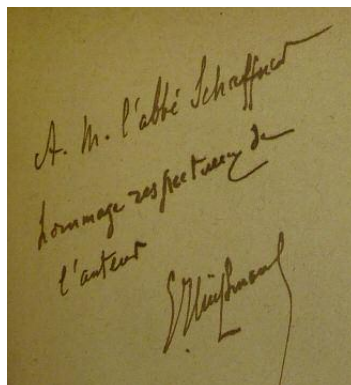 A. M. l'abbé Schaffner
hommage respectueux de
l'auteur